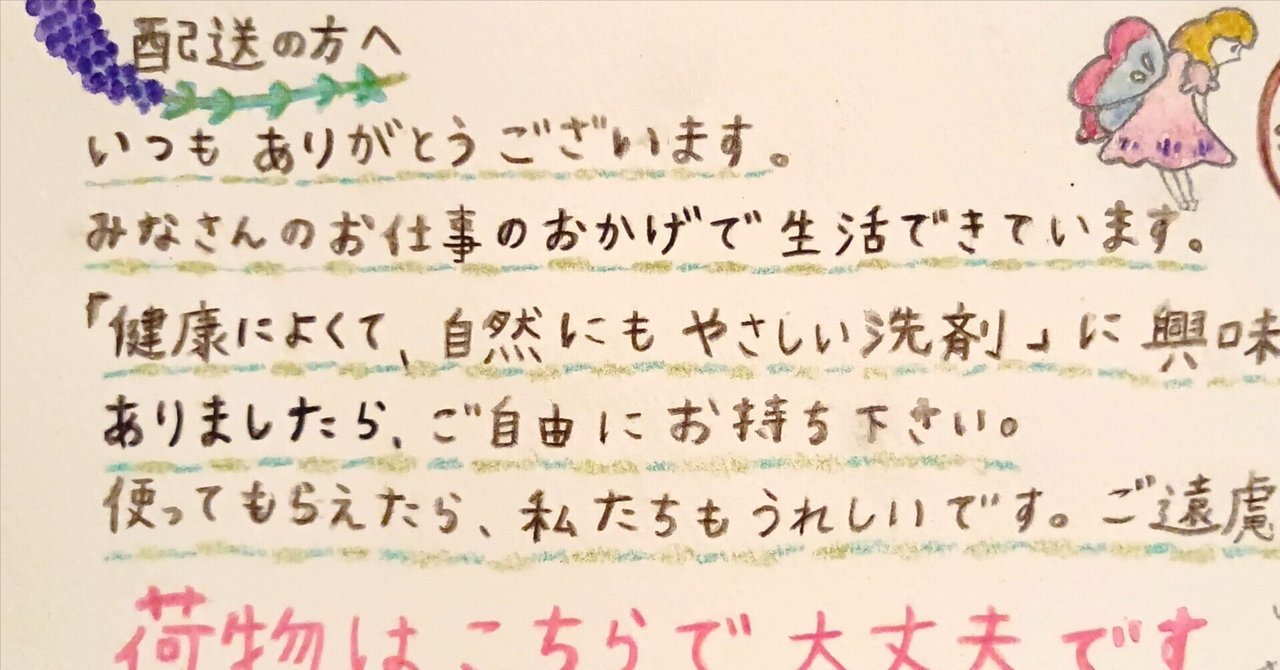 配送の方へ
いつも ありがとう ございます。
みなさんのお仕事のおかげで生活できています。
「健康によくて、自然にも やさしい洗剤」に 興味
ありましたら、ご自由に お持ち下さい。
使ってもらえたら、私たちもうれしいです。ご遠慮
荷物はこちらで大丈夫です